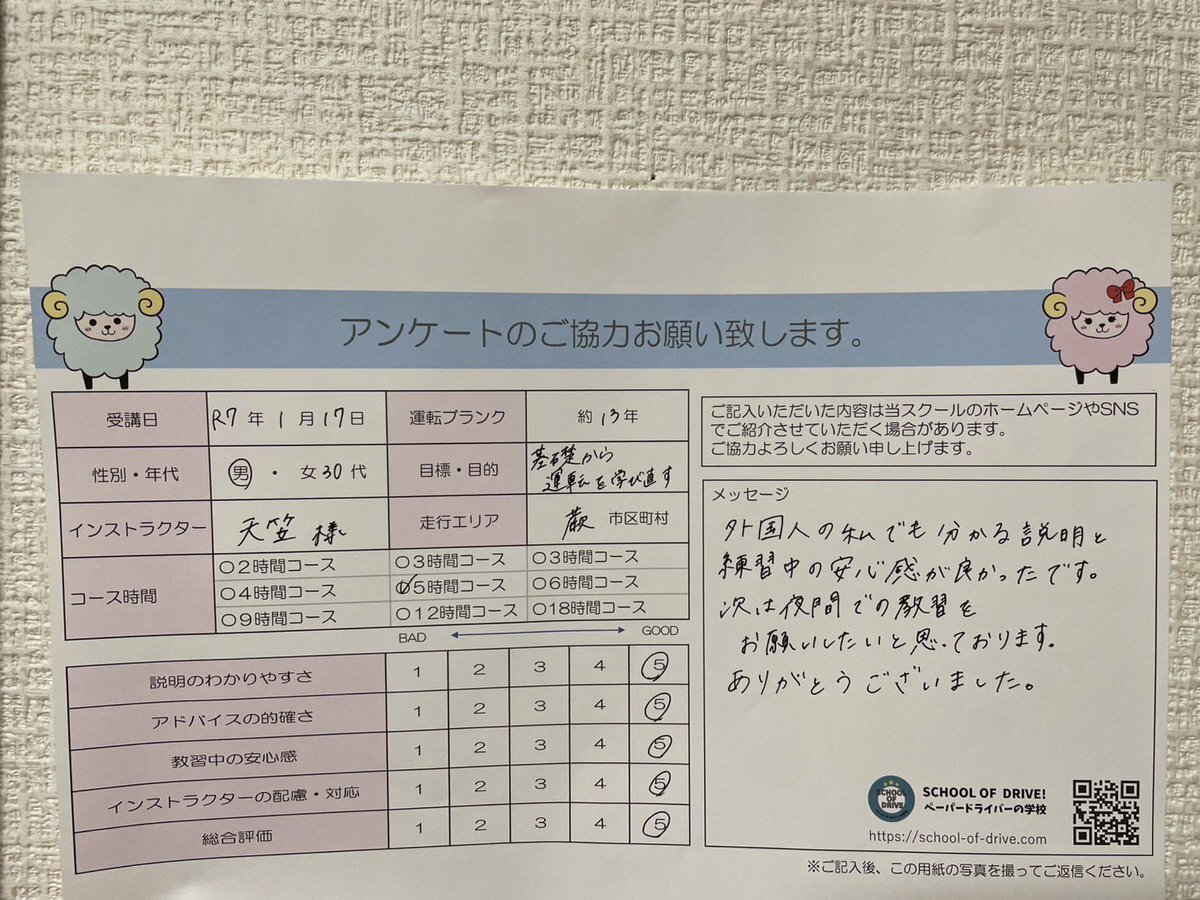 アンケートのご協力お願い致します。
受講日 R7 年 1 月 17 日 運転ブランク 約 13 年
性別・年代 男 ・ 女 30 代 目標・目的 基礎から
運転を学び直す
インストラクター 天笠 様 走行エリア 蕨 市区町村
コース時間
○2時間コース ○3時間コース ○3時間コース
○4時間コース ○5時間コース ○6時間コース
○9時間コース ○12時間コース ○18時間コース
BAD GOOD
説明のわかりやすさ 1 2 3 4 5
アドバイスの的確さ 1 2 3 4 5
教習中の安心感 1 2 3 4 5
インストラクターの配慮・対応 1 2 3 4 5
総合評価 1 2 3 4 5
ご記入いただいた内容は当スクールのホームページやSNS
でご紹介させていただく場合があります。
ご協力よろしくお願い申し上げます。
メッセージ
外国人の私でも分かる説明と
練習中の安心感が良かったです。
次は夜間での教習を
お願いしたいと思っております。
ありがとうございました。
SCHOOL OF DRIVE
SCHOOL OF DRIVE!
ペーパードライバーの学校
https://school-of-drive.com
※ご記入後、この用紙の写真を撮ってご返信ください。